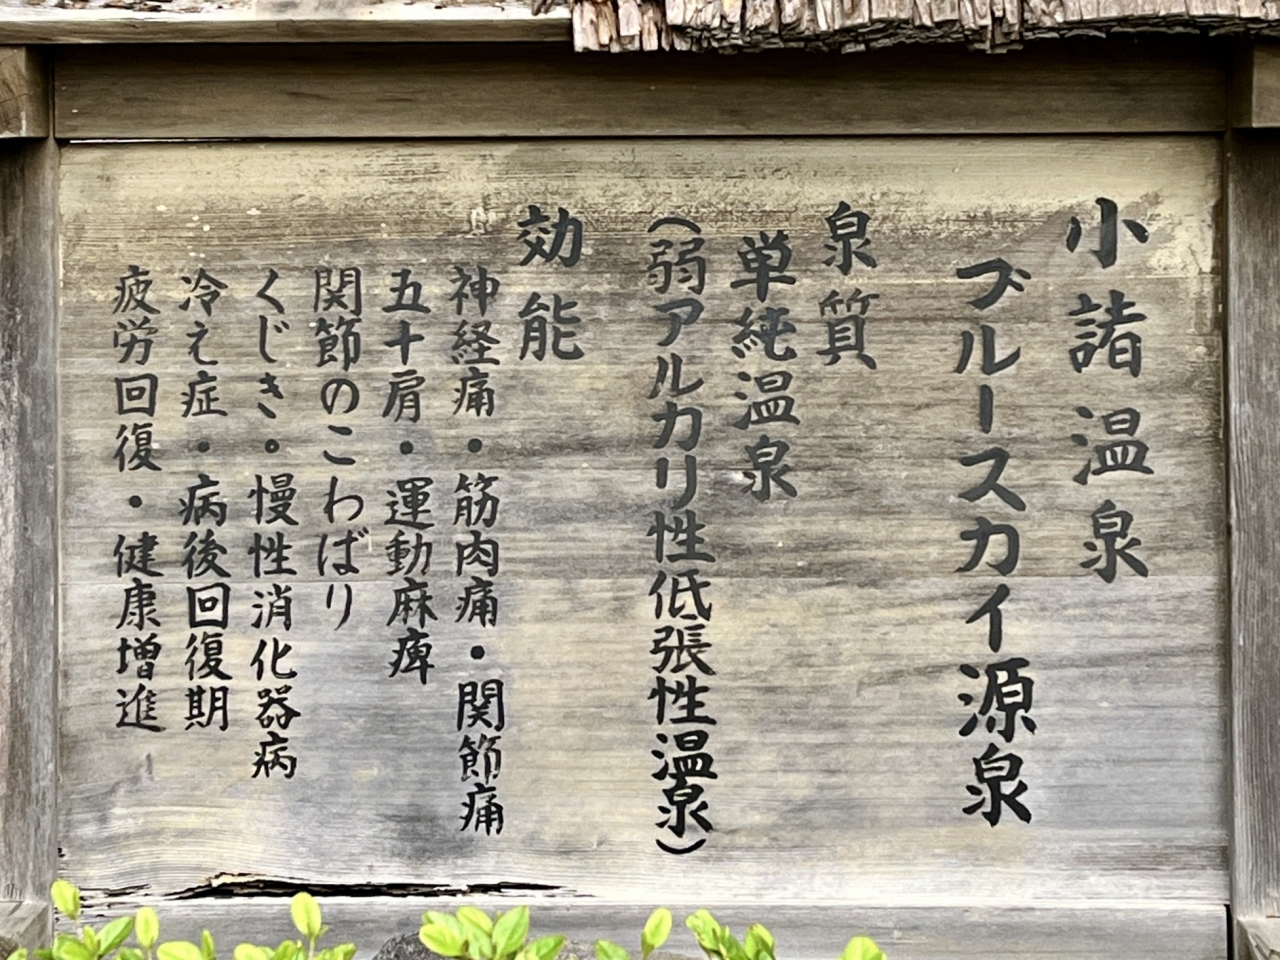 小諸温泉
ブルースカイ源泉
泉質
単純温泉
（弱アルカリ性低張性温泉）
効能
神経痛・筋肉痛・関節痛
五十肩・運動麻痺
関節のこわばり
くじき・慢性消化器病
冷え症・病後回復期
疲労回復・健康増進